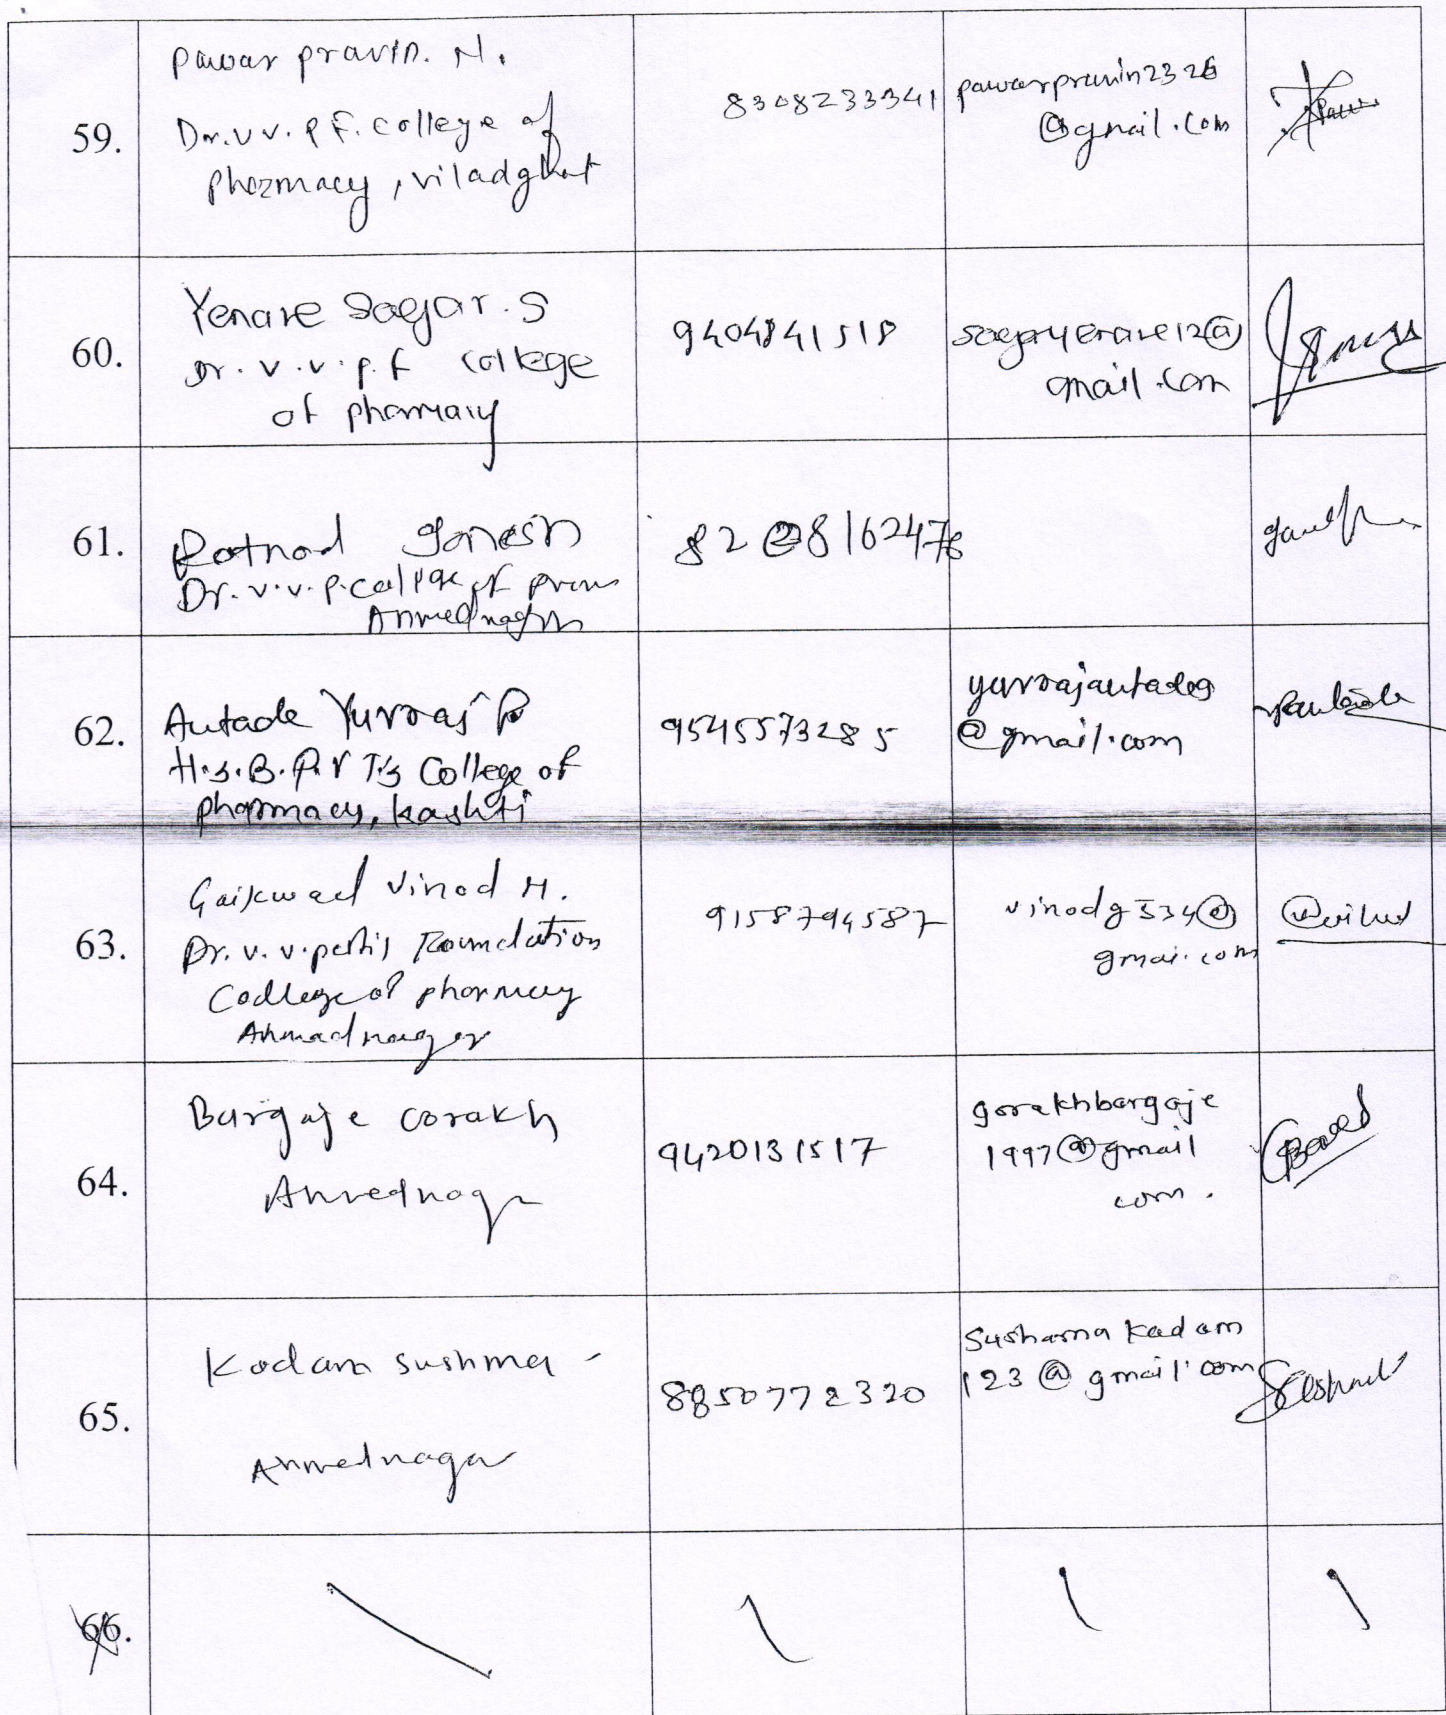 59.
Pawar pravin. N.
Dr. v v. P F. college of
pharmacy, viladghat
8308233341
pawarpravin2326
@gmail.com
60.
Yenare Sagar. S
Dr. v. v. p. f college
of pharmacy
9404841518
sagaryenare12@
gmail.com
61.
Ganesh
Dr. v. v. p. college of
Ahmednagar
62.
Autade Yuvraj P
H.S.B.P.V T's College of
pharmacy, kashti
9545573285
@gmail.com
63.
Gaikwad Vinod H.
Dr. v. v. patil Foundation
College of pharmacy
Ahmadnagar
9158794587
vinodg534@
gmai.com
64.
Bargaje Gorakh
Ahmednagar
9420131517
gorakhbargaje
1997@gmail
com.
65.
Kadam sushma -
Ahmednagar
8850772320
Sushama kadam
123@gmail.com
66.